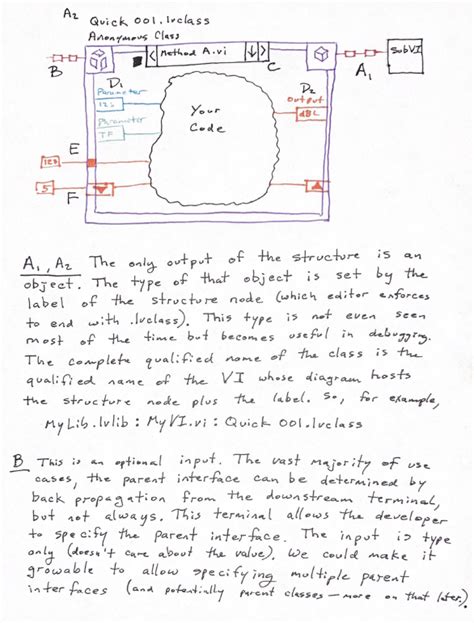 A2 Quick 001.lvclass
Anonymous Class
Method A.vi
SubVI
B
C
A1
D1
Parameter
123
Parameter
TF
Your
Code
D2
Output
dBL
E
123
5
F
A1, A2 The only output of the structure is an
object. The type of that object is set by the
label of the structure node (which editor enforces
to end with .lvclass). This type is not even seen
most of the time but becomes useful in debugging.
The complete qualified name of the class is the
qualified name of the VI whose diagram hosts
the structure node plus the label. So, for example,
MyLib.lvlib : MyVI.vi : Quick 001.lvclass
B This is an optional input. The vast majority of use
cases, the parent interface can be determined by
back propagation from the downstream terminal,
but not always. This terminal allows the developer
to specify the parent interface. The input is type
only (doesn't care about the value). We could make it
growable to allow specifying multiple parent
interfaces (and potentially parent classes — more on that later.)